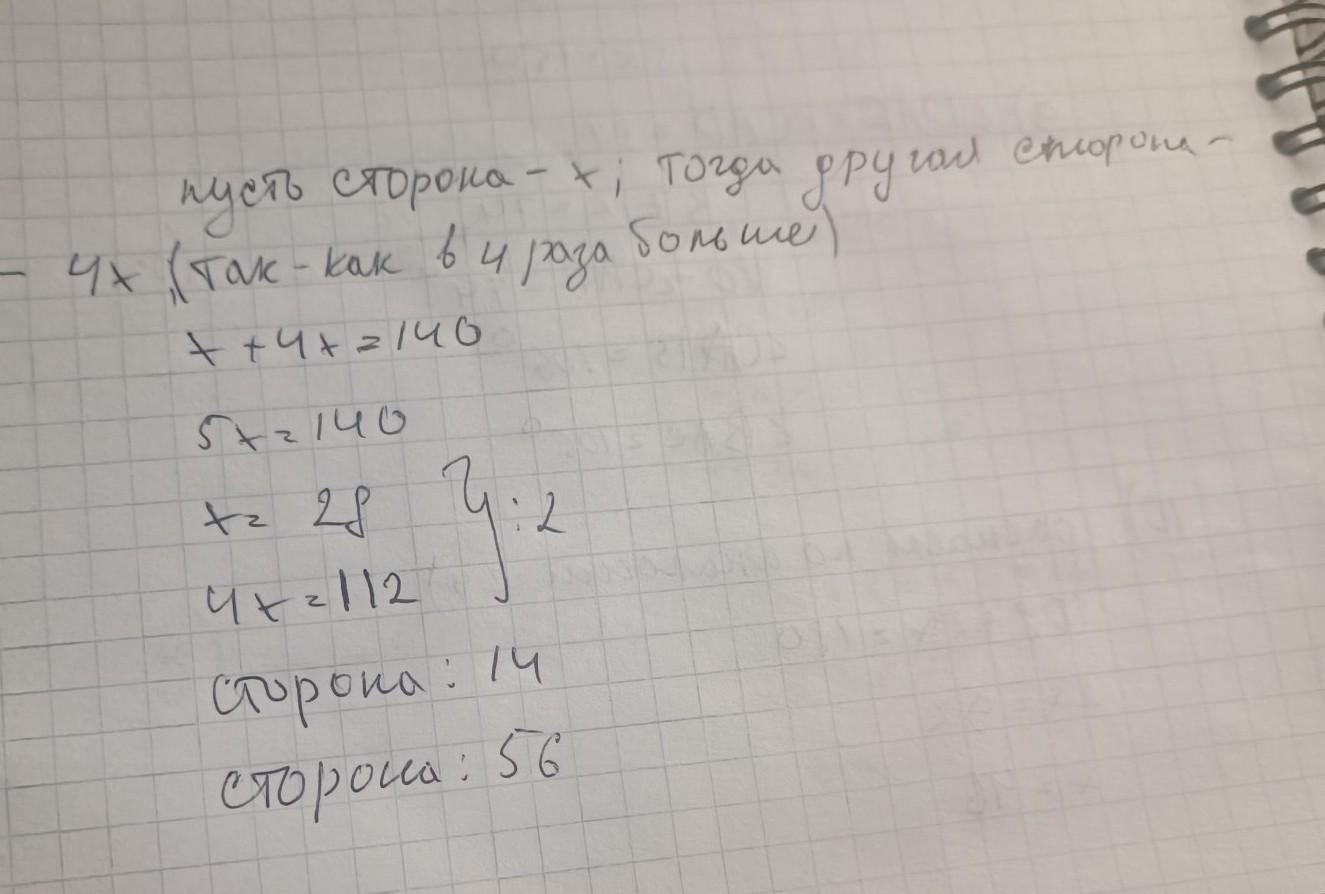 пусть сторона - x; тогда другая сторона -
- 4x (так-как в 4 раза больше)
x + 4x = 140
5x = 140
x = 28 } : 2
4x = 112
сторона: 14
сторона: 56